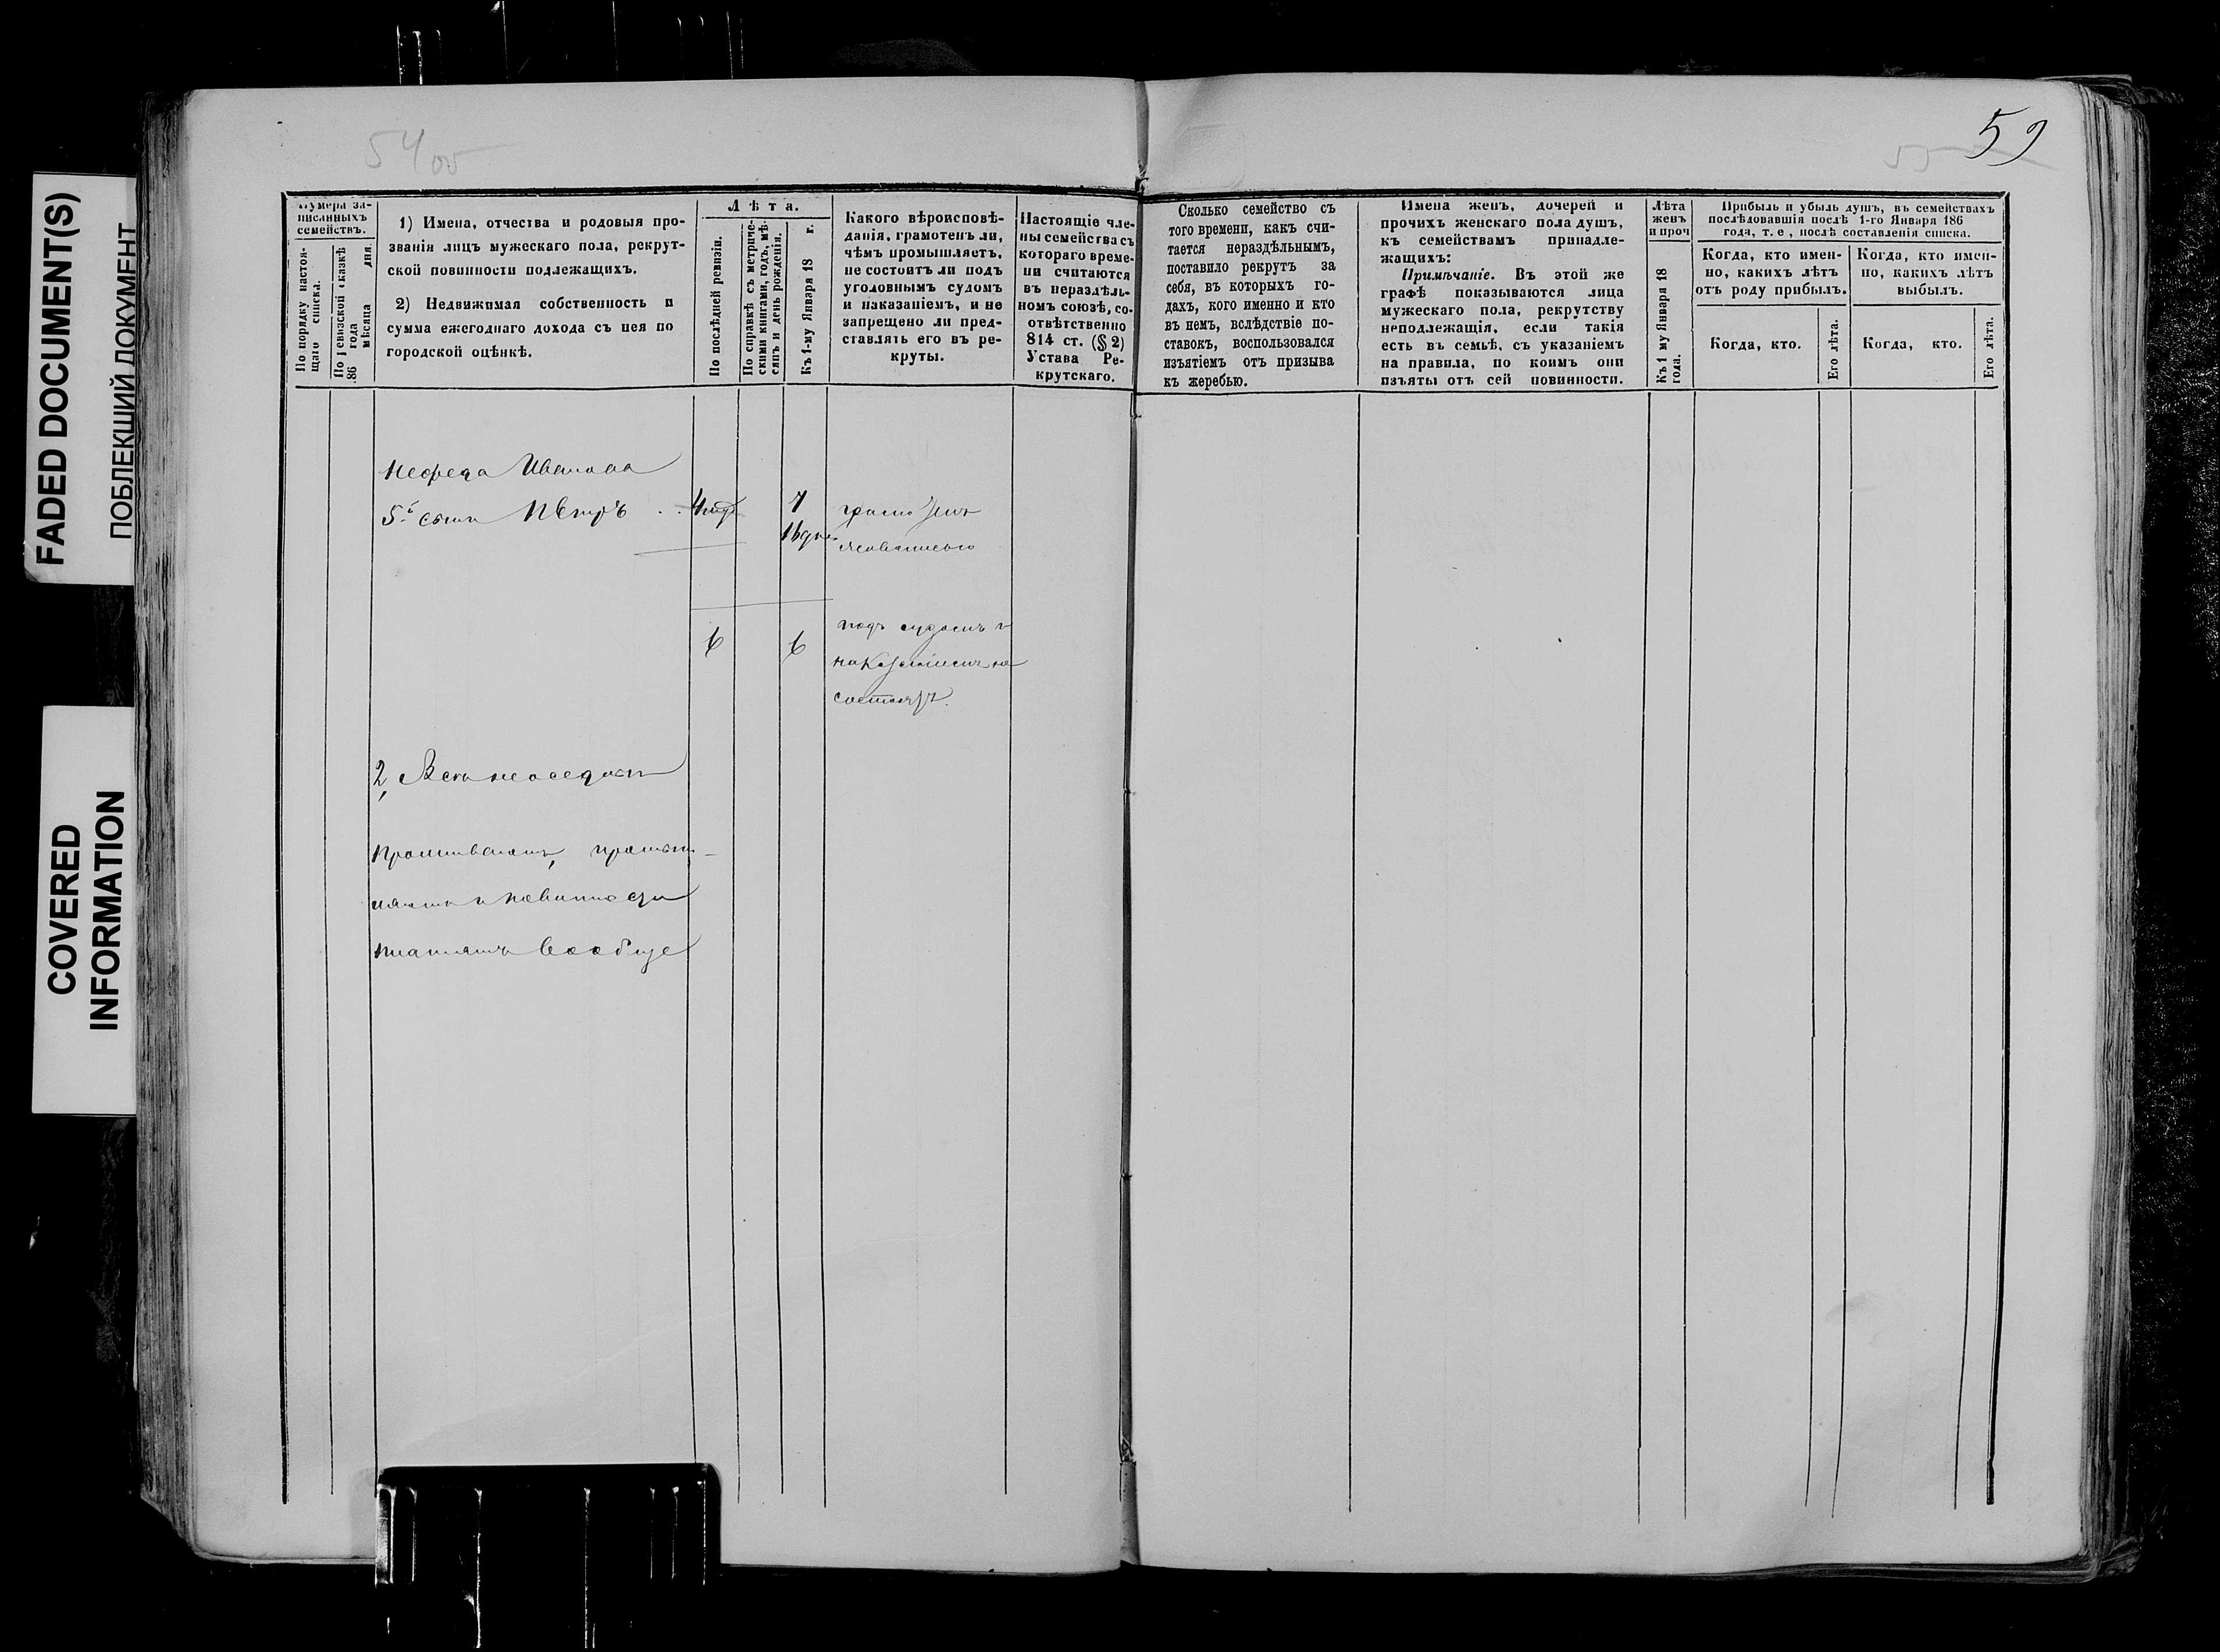 FADED DOCUMENT(S)
ПОБЛЕКШИЙ ДОКУМЕНТ
COVERED
INFORMATION
54 об
59
Нумера за-
писанныхъ
семействъ.
По порядку настоя-
щаго списка.
По Ревизской сказкѣ
186 года
мѣсяца дня.
1) Имена, отчества и родовыя про-
званія лицъ мужескаго пола, рекрут-
ской повинности подлежащихъ.
2) Недвижимая собственность и
сумма ежегоднаго дохода съ нея по
городской оцѣнкѣ.
Лѣта.
По послѣдней ревизіи.
По справкѣ съ метриче-
скими книгами, годъ, мѣ-
сяцъ и день рожденія.
Къ 1-му Января 18 г.
Какого вѣроисповѣ-
данія, грамотенъ ли,
чѣмъ промышляетъ,
не состоитъ ли подъ
уголовнымъ судомъ
и наказаніемъ, и не
запрещено ли пред-
ставлять его въ ре-
круты.
Настоящіе чле-
ны семейства съ
котораго време-
ни считаются
въ нераздѣль-
номъ союзѣ, со-
отвѣтственно
814 ст. (§ 2)
Устава Ре-
крутскаго.
Сколько семейство съ
того времени, какъ счи-
тается нераздѣльнымъ,
поставило рекрутъ за
себя, въ которыхъ го-
дахъ, кого именно и кто
въ немъ, вслѣдствіе по-
ставокъ, воспользовался
изъятіемъ отъ призыва
къ жеребью.
Имена женъ, дочерей и
прочихъ женскаго пола душъ,
къ семействамъ принадле-
жащихъ:
Примѣчаніе. Въ этой же
графѣ показываются лица
мужескаго пола, рекрутству
неподлежащія, если такія
есть въ семьѣ, съ указаніемъ
на правила, по коимъ они
изъяты отъ сей повинности.
Лѣта
женъ
и проч
Къ 1 му Января 18
года.
Прибыль и убыль душъ, въ семействахъ
послѣдовавшія послѣ 1-го Января 186
года, т. е., послѣ составленія списка.
Когда, кто имен-
но, какихъ лѣтъ
отъ роду прибылъ.
Когда, кто.
Его лѣта.
Когда, кто имен-
но, какихъ лѣтъ
выбылъ.
Когда, кто.
Его лѣта.
Нефеда Иванова
5й сынъ Петръ
7
6 6
подъ судомъ и
наказаніемъ не
состоятъ.
2,
Проживаютъ,
и повинности
платятъ вообще